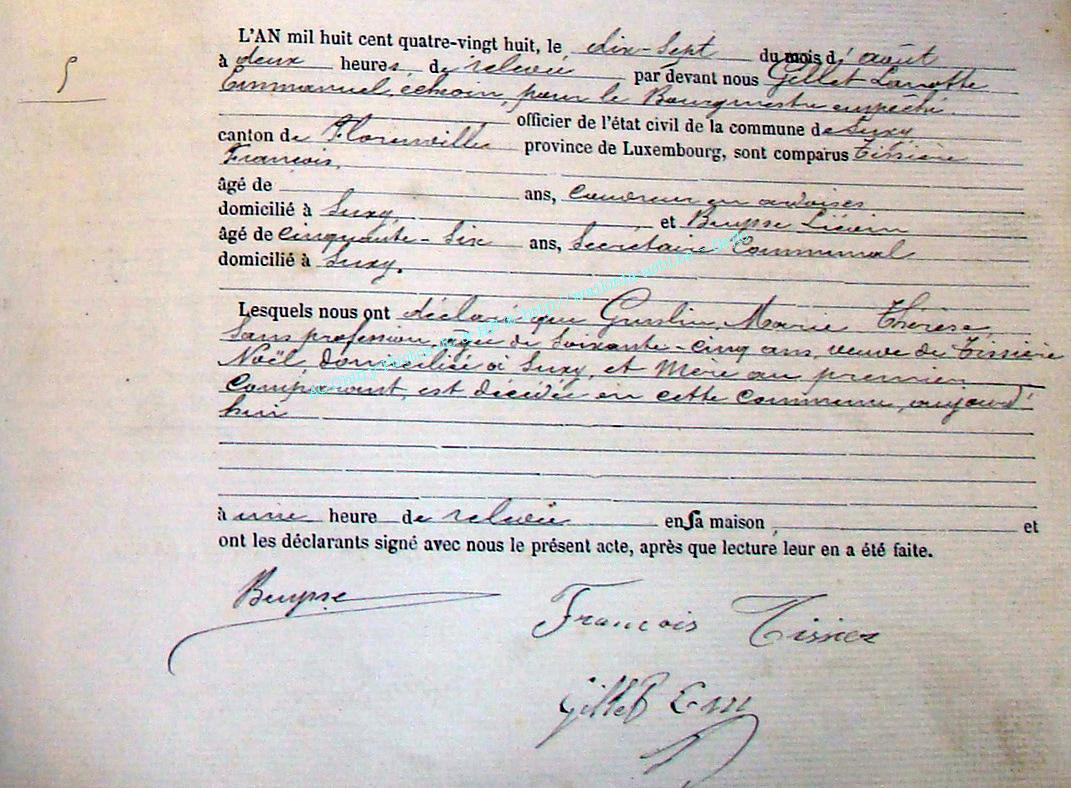 5
L'AN mil huit cent quatre-vingt huit, le dix-Sept du mois d'août
à deux heures de relevée par devant nous Gillet Lamotte
Emmanuel, échevin, pour le Bourgmestre empêché
officier de l'état civil de la commune de Suxy
canton de Florenville province de Luxembourg, sont comparus Tissière
François,
âgé de ans, couvreur en ardoises
domicilié à Suxy, et Buysse Liévin
âgé de cinquante-Six ans, Secrétaire Communal
domicilié à Suxy.
Lesquels nous ont déclaré que Guslin, Marie Thérèse,
Sans profession, agée de Soixante-Cinq ans, veuve de Tissière
Noël, domiciliée à Suxy, et Mère au premier
Comparant, est décédée en cette Commune, aujourd'
hui
à une heure de relevée en Sa maison, et
ont les déclarants signé avec nous le présent acte, après que lecture leur en a été faite.
Buysse
François Tissier
Gillet Em